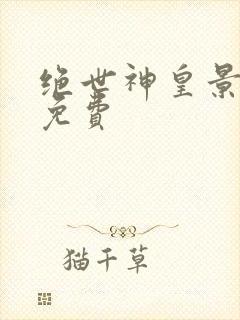 绝世神皇景
免费
猫千草